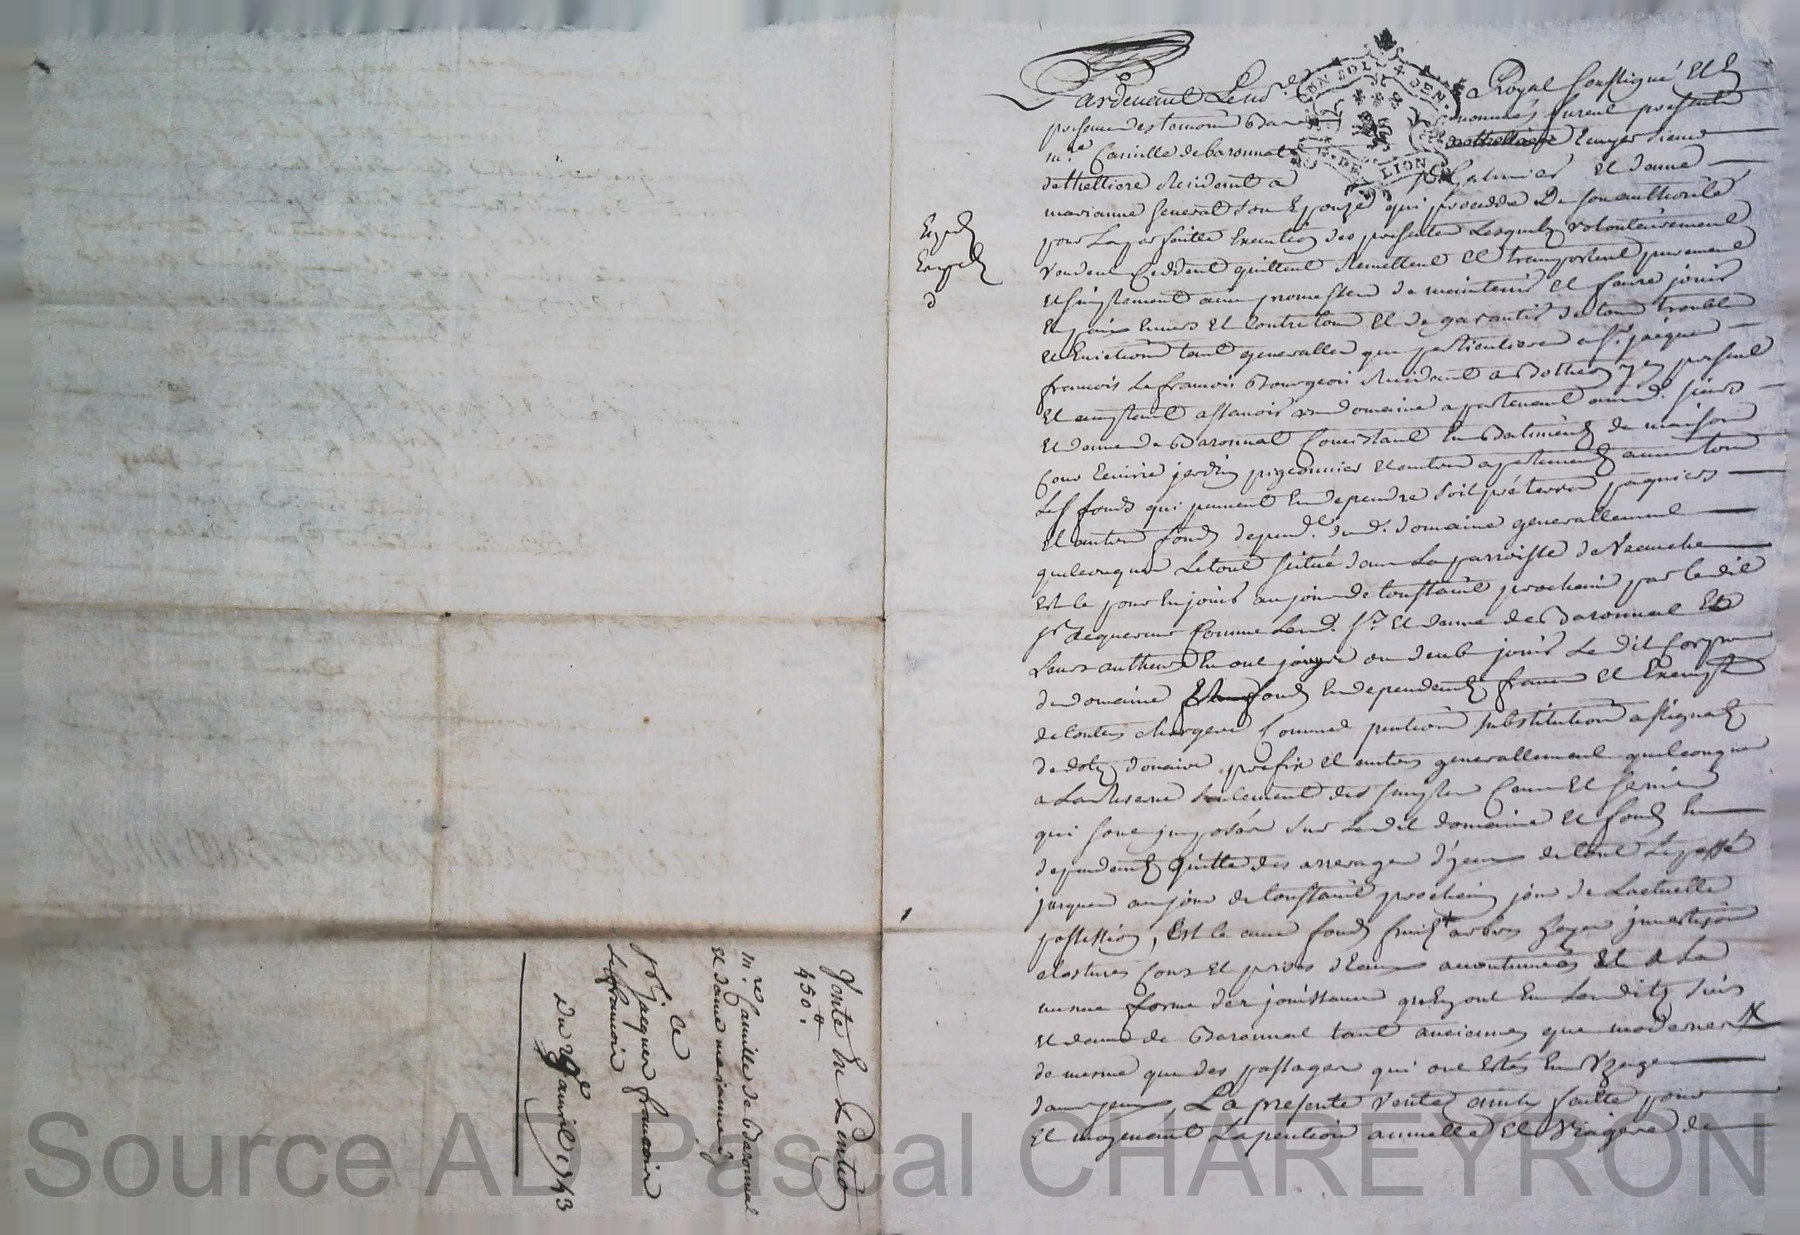 Pardevant Le no.re Royal soussigné Et En
presence des temoins bas nommés furent presents
m.re Camille de baronnat Ecuyer sieur
dethelliere Residant a St Galmier et dame
marianne Seneral son Epouze qui procedde De son authorité
pour La parfaitte Execution des presentes Lesquels volontairement
vendent Ceddent quittent Remettent Et transportent purement
et simplement avec promesses de maintenir et faire jouir
En paix Envers Et Contre tous Et de garantir de tous troubles
et Evictions tant generalles que particulieres a Sr. jacques
francois Lefrancois Bourgeois Residant a Bothéon icy present
Et acceptant assavoir un domaine apartenant aux d. sieur
et dame de Baronnat Consistant En Batiments de maison
Cour Ecuirie jardin pigeonnier et autres apartements avec tous
Les fonds qui peuvent En dependre soit pré terres paquiers
et autres fonds depend.ts du d. domaine generallement
quelconques Le tout scitué dans La parroisse de Veauche
Est ce pour En jouir au jour de toussaint prochain par Ledit
sr. acquereur Comme Lesd. sr. Et dame de Baronnat Et
Leurs autheurs En ont jouy ou deub jouir Le dit Corps
de domaine fonds En dependents francs et Exempts
de toutes Charges Comme pentions substitutions assignats
de dots douaire prefix et autres generallement quelconques
a La Reserve seulement des simples Cens Et servis
qui sont jmposés sur Ledit domaine et fonds En
dependents quitte des arrerages d'jceux de tout Le passé
jusques au jour de toussaint prochain jour de Lactuelle
possession, Est ce avec fonds fruits arbres hayes
clostures Cours et prises d'Eaux accoutumées Et A La
mesme forme des jouissances qu'En ont Eu Lesdits sieur
et dame de Baronnat tant anciennes que modernes
de mesme que des passages qui ont Estés En Uzage
dans jceux La presente vente ainsy faitte pour
Et moyenant La pention annuelle Et Viagere de
GEN.
DE LION
Vente En
450.tt
m.re Camille de Baronnat
et dame marianne
a
Sr. jacques francois
Lefrancois
Du avril 1743
Source AD Pascal CHAREYRON